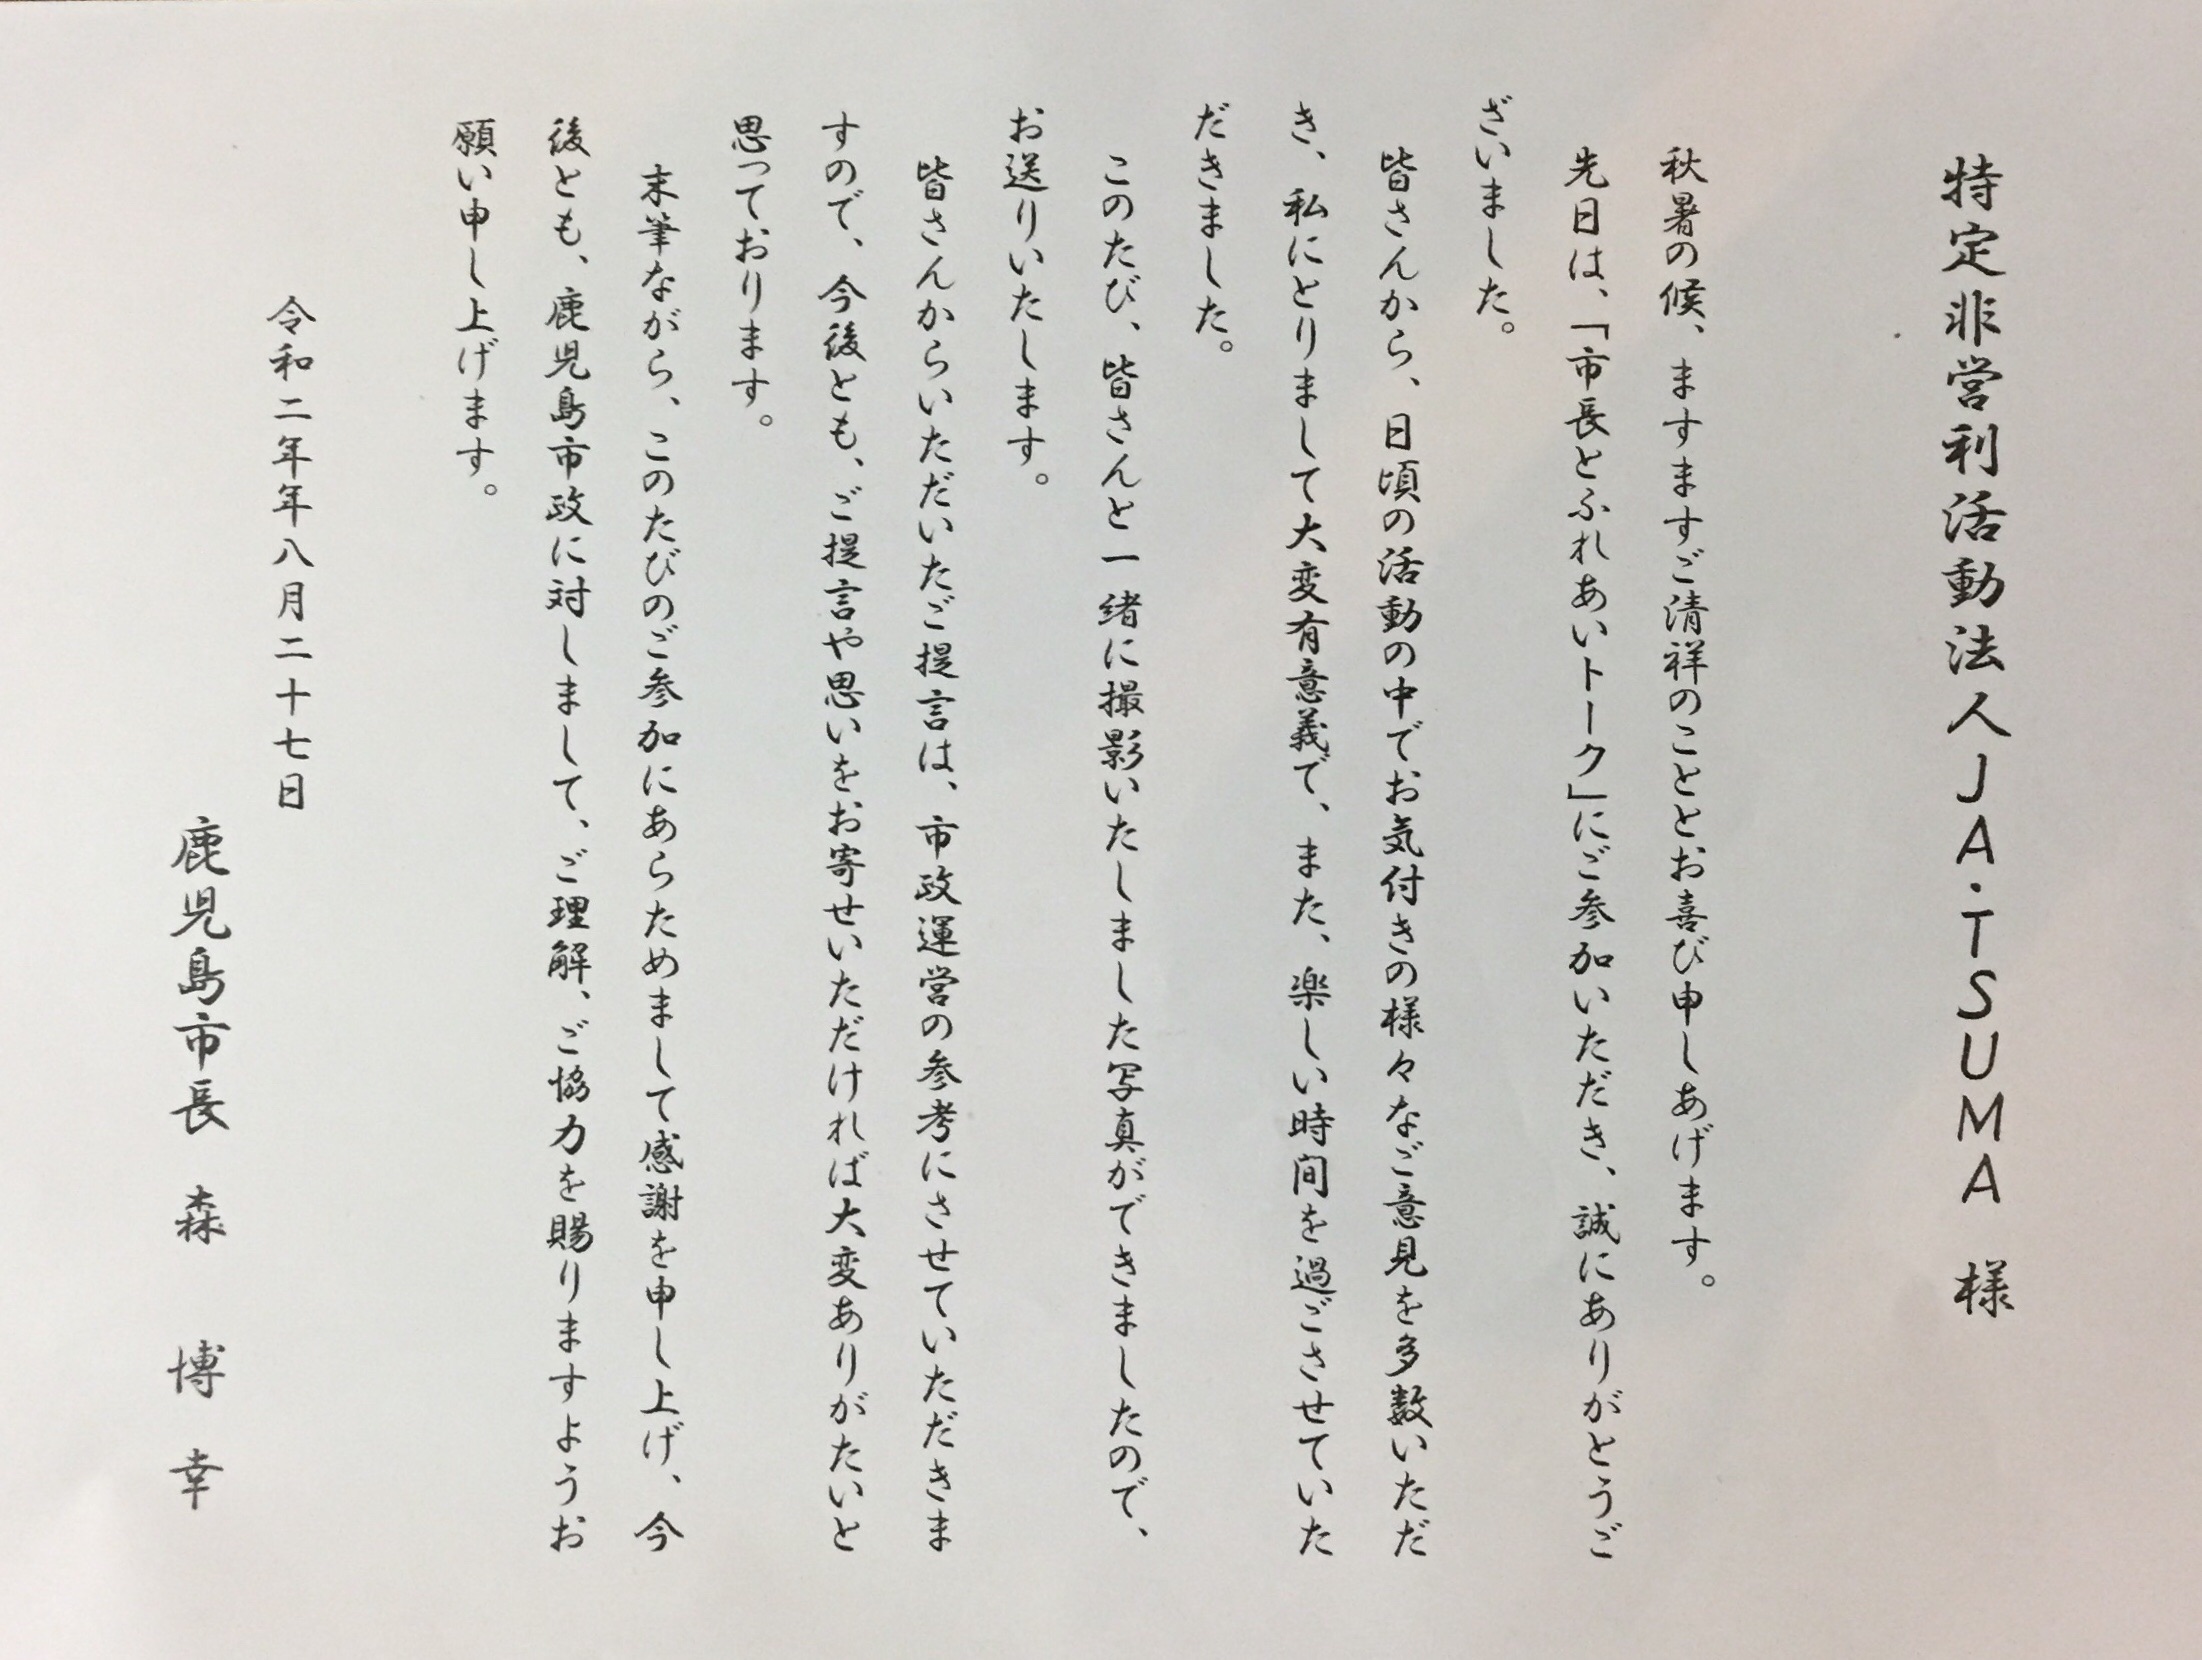 特定非営利活動法人JA・TSUMA 様
秋暑の候、ますますご清祥のこととお喜び申しあげます。
先日は、「市長とふれあいトーク」にご参加いただき、誠にありがとうご
ざいました。
皆さんから、日頃の活動の中でお気付きの様々なご意見を多数いただ
き、私にとりまして大変有意義で、また、楽しい時間を過ごさせていた
だきました。
このたび、皆さんと一緒に撮影いたしました写真ができましたので、
お送りいたします。
皆さんからいただいたご提言は、市政運営の参考にさせていただきま
すので、今後とも、ご提言や思いをお寄せいただければ大変ありがたいと
思っております。
末筆ながら、このたびのご参加にあらためまして感謝を申し上げ、今
後とも、鹿児島市政に対しまして、ご理解、ご協力を賜りますようお
願い申し上げます。
令和二年年八月二十七日
鹿児島市長 森 博幸